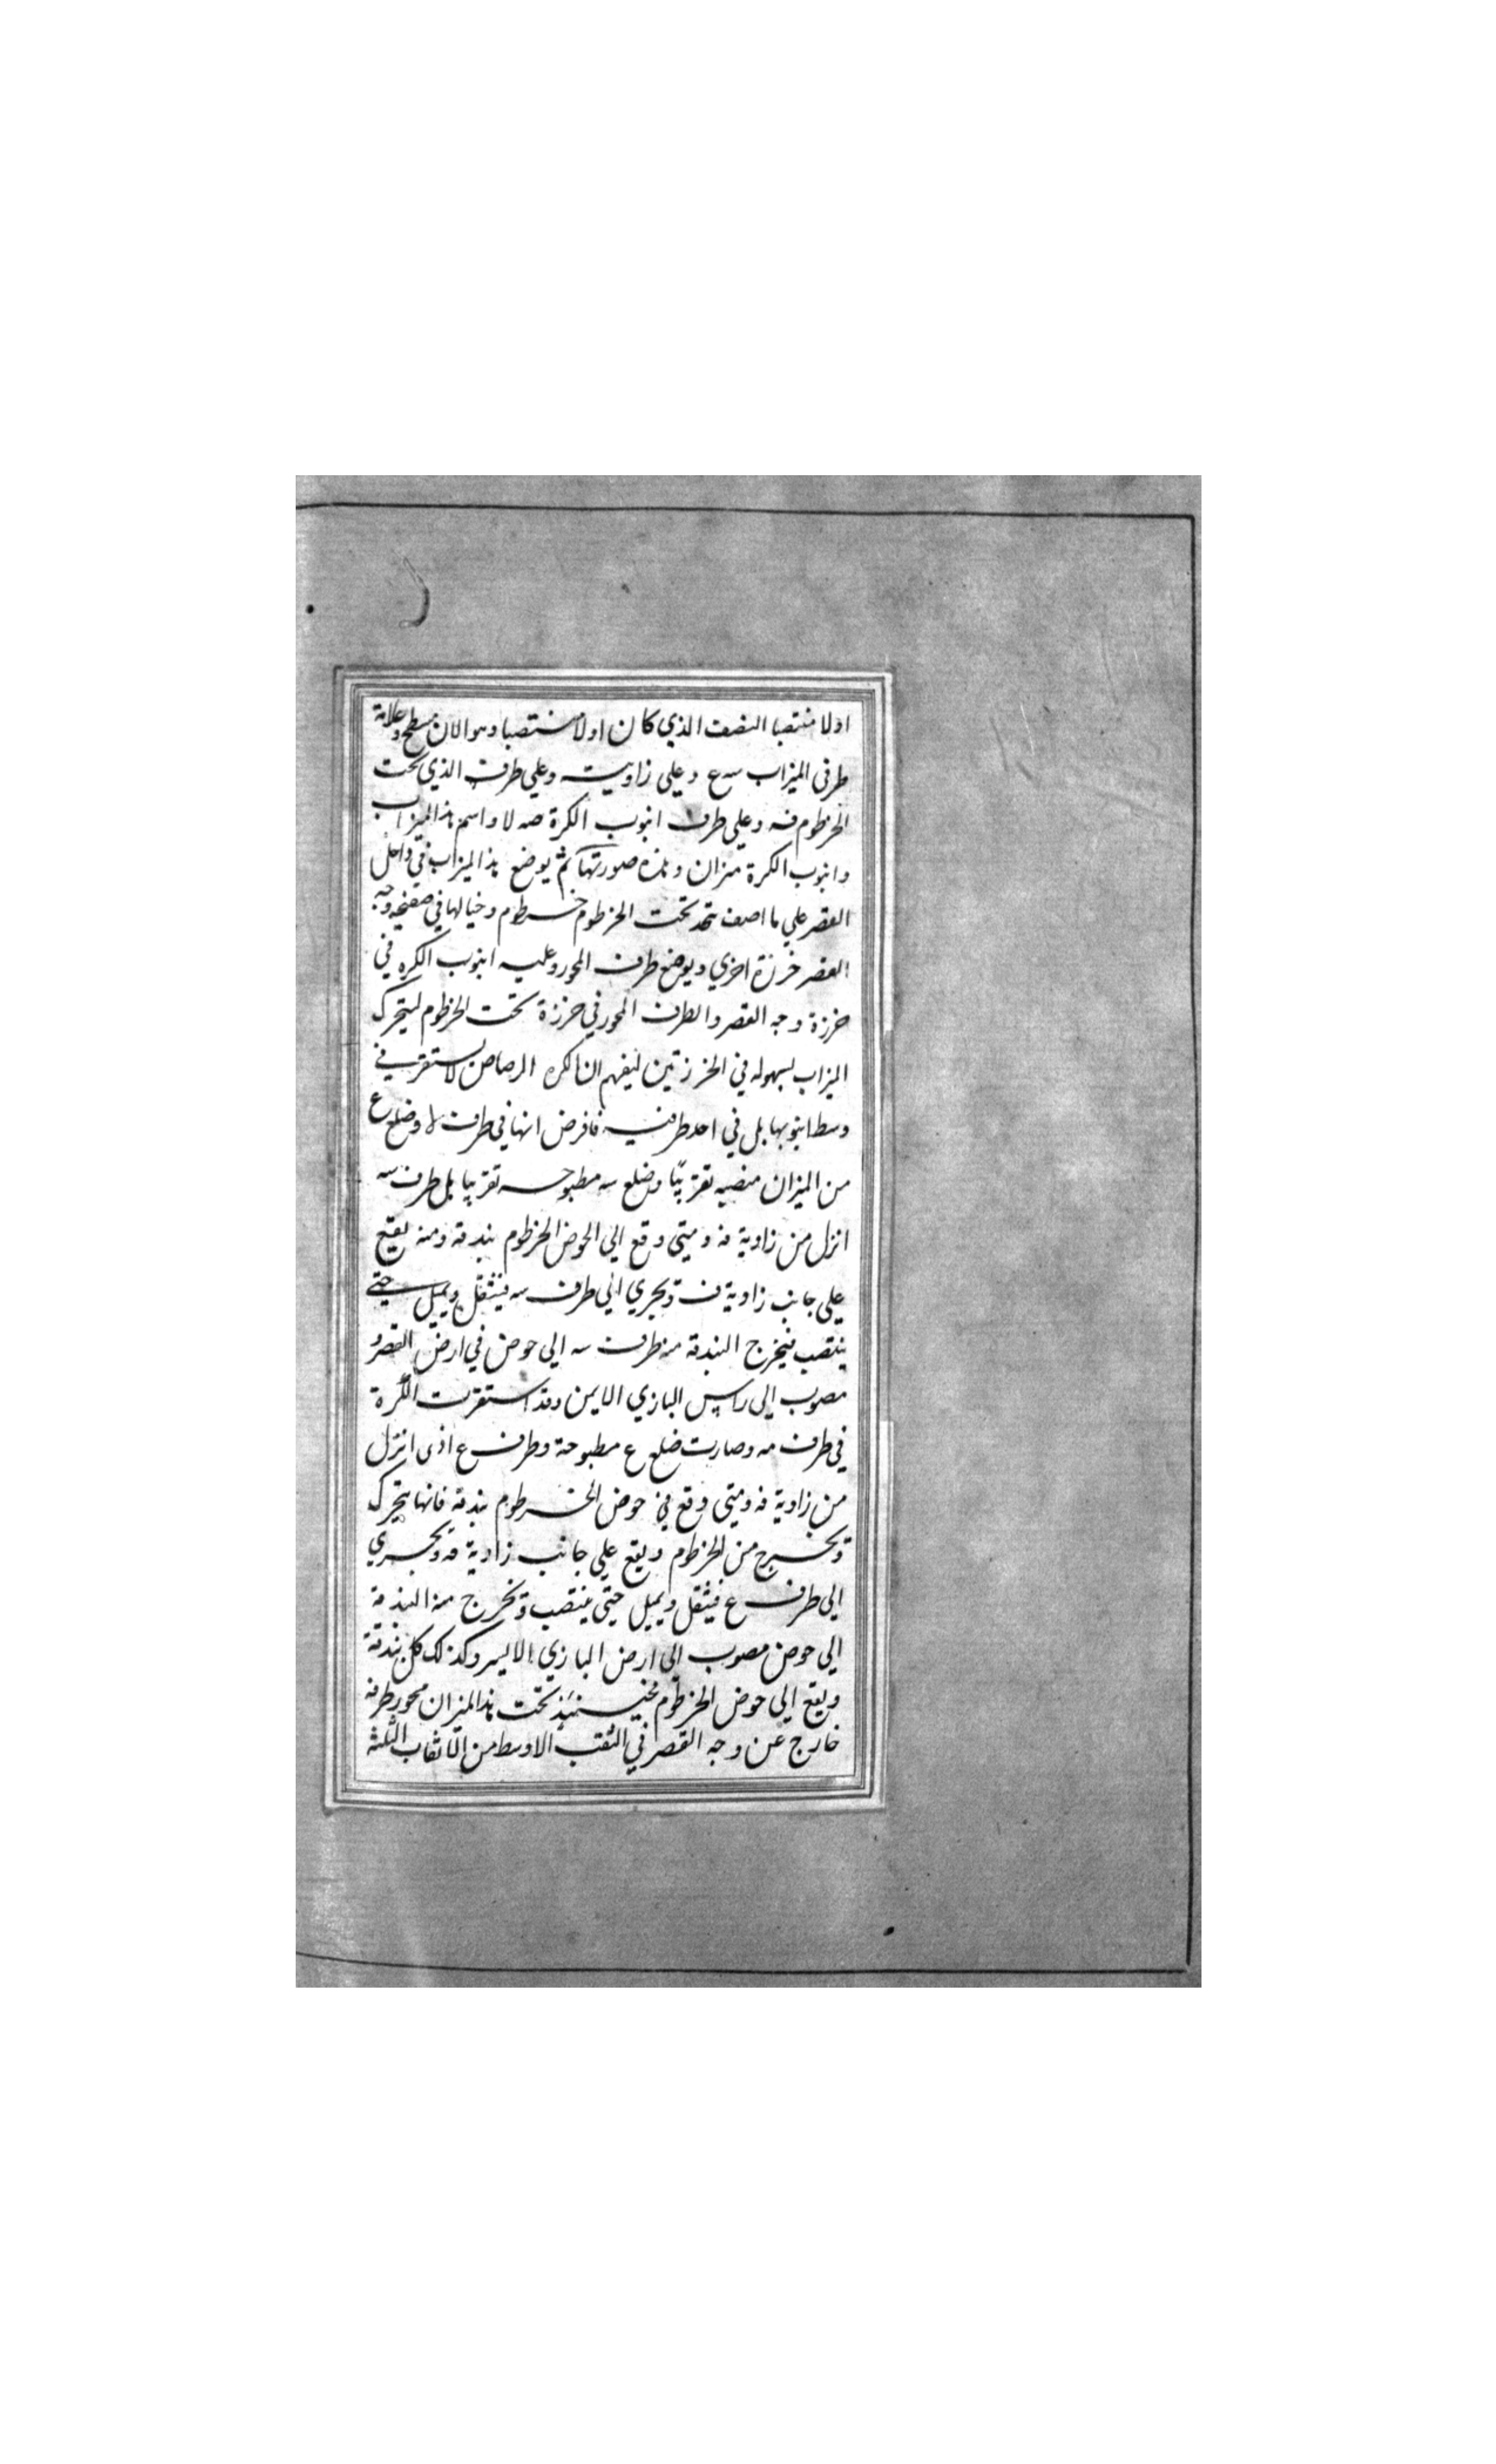 اولا منتصبا النصف الذي كان اولا منتصبا وهو الان مسطح وعلامة
طرفي الميزاب سه ع وعلي زاويته وعلي طرف الذي تحت
الخرطوم فه وعلي طرف انبوب الكرة صه لا واسم هذا الميزاب
وانبوب الكرة ميزان وهذه صورتها ثم يوضع هذا الميزاب في داخل
القصر علي ما اصف تتخذ تحت الخرطوم خرطوم وحيالها في صفحة وجه
القصر خرزة اخري ويوضع طرف المحور وعليه انبوب الكره في
خرزة وجه القصر والطرف المحور في خرزة تحت الخرطوم ليتحرك
الميزاب بسهوله في الخرزتين ليفهم ان اكره الرصاص لا يستقر في
وسط انبوبها بل في احد طرفيه فافرض انها في طرف لا وضلع ع
من الميزان منصبه تقريبا وضلع سه مطبوحه تقريبا بل طرف سه
انزل من زاوية فه ومتي وقع الي الحوض الخرطوم بندقة ومنه يقع
علي جانب زاوية ف وتجري الي طرف سه فيثقل ويميل حتي
ينتصب فيخرج البندقة من طرف سه الي حوض في ارض القصر و
مصوب الي راس البازي الايمن وقد استقرت الكرة
في طرف صه وصارت ضلع ع مطبوحة وطرف ع اذي انزل
من زاوية فه ومتي وقع في حوض الخرطوم بندقة فانها يتحرك
وتخرج من الخرطوم ويقع علي جانب زاوية فه وتجري
الي طرف ع فيثقل ويميل حتي ينتصب وتخرج منه البندقة
الي حوض مصوب الي ارض البازي الايسر وكذلك كل بندقة
ويقع الي حوض الخرطوم فحينئذ تحت هذا الميزان محور طرفه
خارج عن وجه القصر في الثقب الاوسط من الاثقاب الثلثة